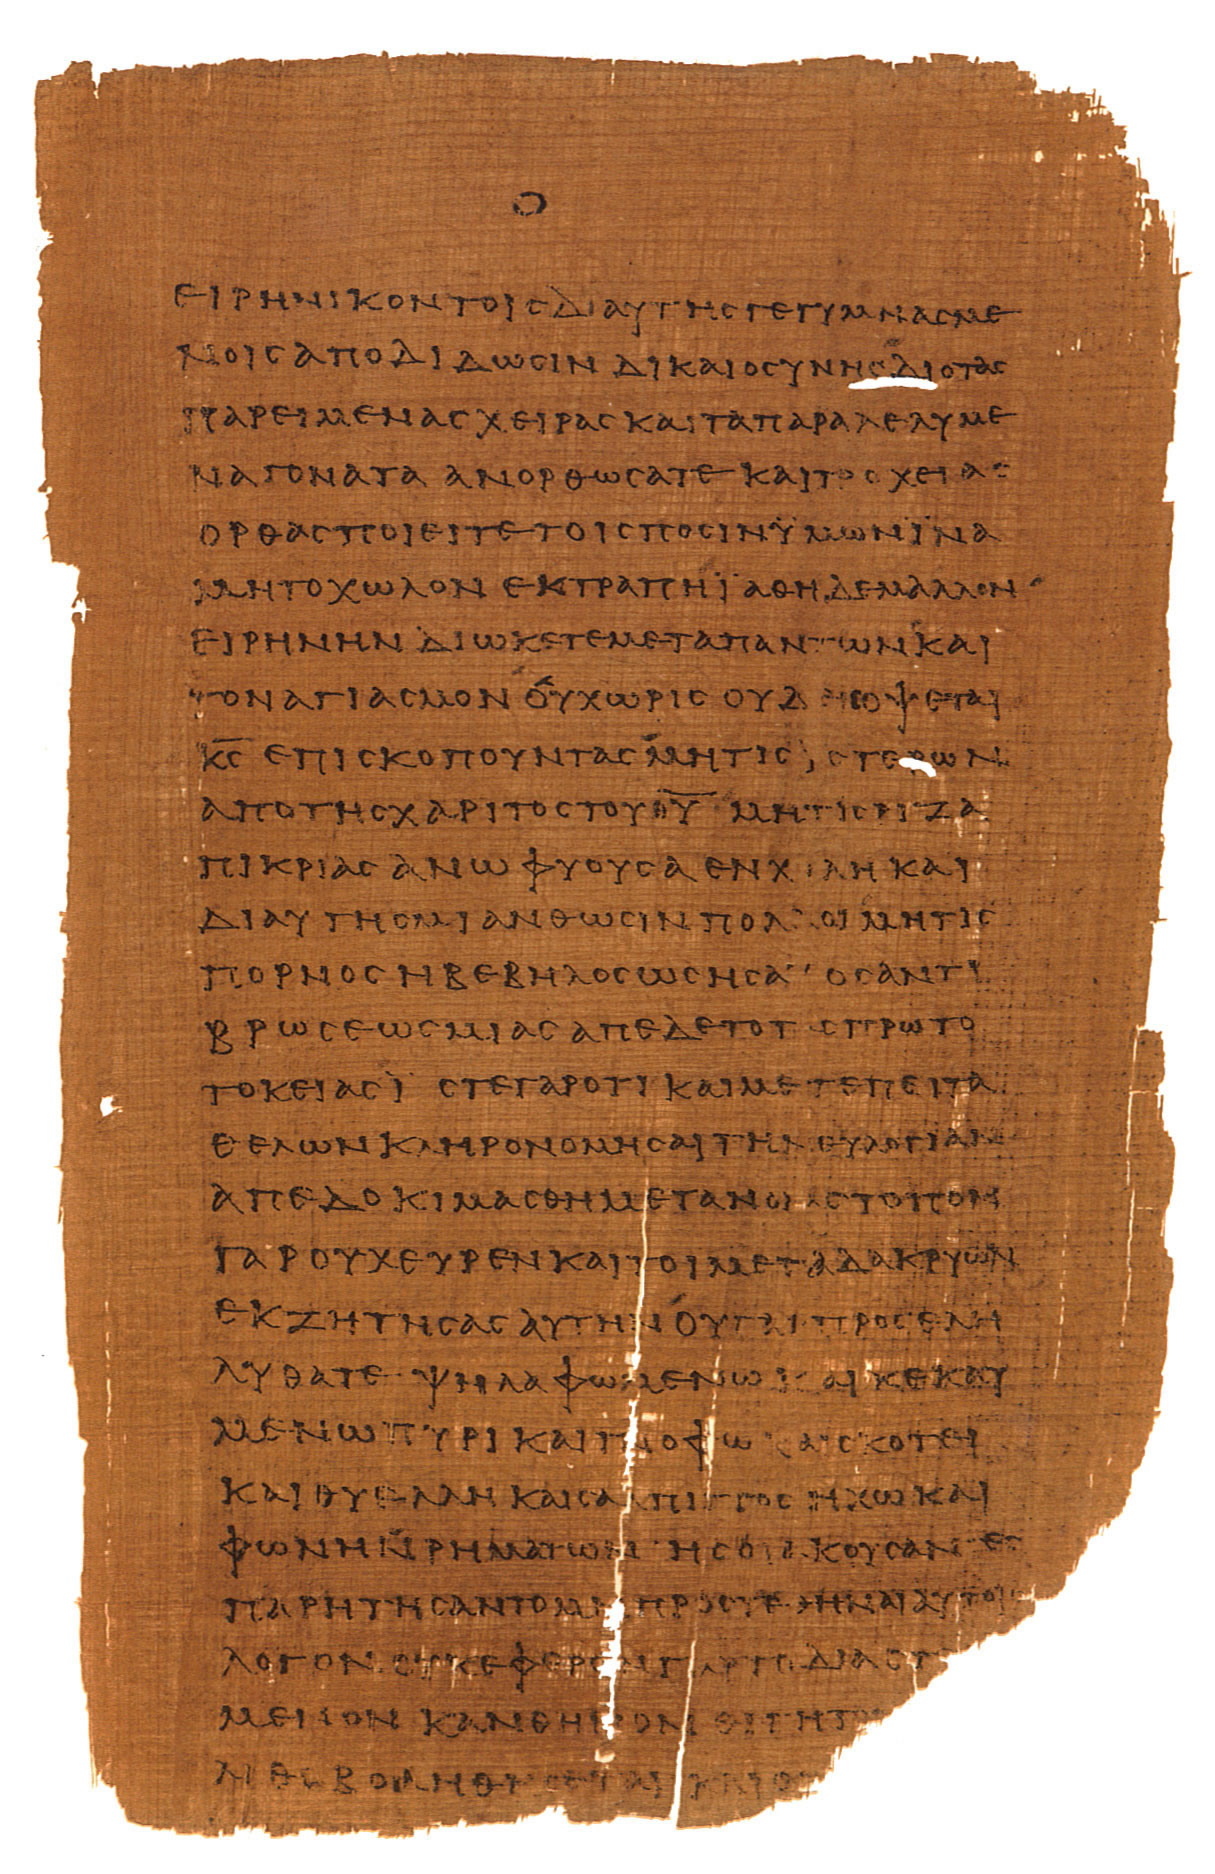 Ο
ΕΙΡΗΝΙΚΟΝΤΟΙΣΔΙΑΥΤΗΣΓΕΓΥΜΝΑΣΜΕ
ΝΟΙΣΑΠΟΔΙΔΩΣΙΝΔΙΚΑΙΟΣΥΝΗΣΔΙΟΤΑΣ
ΠΑΡΕΙΜΕΝΑΣΧΕΙΡΑΣΚΑΙΤΑΠΑΡΑΛΕΛΥΜΕ
ΝΑΓΟΝΑΤΑ ΑΝΟΡΘΩΣΑΤΕ ΚΑΙΤΡΟΧΕΙΑΣ
ΟΡΘΑΣΠΟΙΕΙΤΕΤΟΙΣΠΟΣΙΝΫΜΩΝΪΝΑ
ΜΗΤΟΧΩΛΟΝ ΕΚΤΡΑΠΗΪΑΘΗΔΕΜΑΛΛΟΝ
ΕΙΡΗΝΗΝ ΔΙΩΚΕΤΕΜΕΤΑΠΑΝΤΩΝΚΑΙ
ΤΟΝΑΓΙΑΣΜΟΝ ΟΥΧΩΡΙΣ ΟΥΔΕΙΣΟΨΕΤΑΙ
Κ̅Σ̅ ΕΠΙΣΚΟΠΟΥΝΤΑΣΜΗΤΙΣΥΣΤΕΡΩΝ
ΑΠΟΤΗΣΧΑΡΙΤΟΣΤΟΥΘ̅Υ̅ ΜΗΤΙΣΡΙΖΑ
ΠΙΚΡΙΑΣΑΝΩΦΥΟΥΣΑΕΝΧΟΛΗΚΑΙ
ΔΙΑΥΤΗΣΜΙΑΝΘΩΣΙΝΠΟΛΛΟΙΜΗΤΙΣ
ΠΟΡΝΟΣΗΒΕΒΗΛΟΣΩΣΗΣΑΥΟΣΑΝΤΙ
ΒΡΩΣΕΩΣΜΙΑΣΑΠΕΔΕΤΟΤΑΣΠΡΩΤΟ
ΤΟΚΕΙΑΣΪΣΤΕΓΑΡΟΤΙΚΑΙΜΕΤΕΠΕΙΤΑ
ΘΕΛΩΝΚΛΗΡΟΝΟΜΗΣΑΙΤΗΝΕΥΛΟΓΙΑΝ
ΑΠΕΔΟΚΙΜΑΣΘΗΜΕΤΑΝΟΙΑΣΤΟΠΟΝ
ΓΑΡΟΥΧΕΥΡΕΝΚΑΙΤΟΙΜΕΤΑΔΑΚΡΥΩΝ
ΕΚΖΗΤΗΣΑΣΑΥΤΗΝΟΥΓΑΡΠΡΟΣΕΛΗ
ΛΥΘΑΤΕ ΨΗΛΑΦΩΜΕΝΩΚΑΙΚΕΚΑΥ
ΜΕΝΩΠΥΡΙΚΑΙΓΝΟΦΩΚΑΙΣΚΟΤΕΙ
ΚΑΙΘΥΕΛΛΗΚΑΙΣΑΛΠΙΓΓΟΣΗΧΩΚΑΙ
ΦΩΝΗΝΡΗΜΑΤΩΝΗΣΟΙΑΚΟΥΣΑΝΤΕΣ
ΠΑΡΗΤΗΣΑΝΤΟΜΗΠΡΟΣΤΕΘΗΝΑΙΑΥΤΟΙΣ
ΛΟΓΟΝΟΥΚΕΦΕΡΟΝΓΑΡΤΟΔΙΑΣΤ
ΜΕΝΟΝΚΑΝΘΗΡΙΟΝΘΙΓΗΤΟΥ
ΛΙΘΟΒΟΛΗΘΗΣΕΤΑΙΚΑΙΟΥ